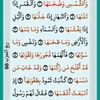 وَالشَّمْسِ وَضُحَىٰهَا وَالْقَمَرِ إِذَا
تَلَىٰهَا وَالنَّهَارِ إِذَا جَلَّىٰهَا
وَاللَّيْلِ إِذَا يَغْشَىٰهَا وَالسَّمَاءِ وَمَا بَنَىٰهَا
وَالْأَرْضِ وَمَا طَحَىٰهَا وَنَفْسٍ وَمَا
سَوَّىٰهَا فَأَلْهَمَهَا فُجُورَهَا وَتَقْوَىٰهَا
قَدْ أَفْلَحَ مَن زَكَّىٰهَا وَقَدْ خَابَ مَن
دَسَّىٰهَا كَذَّبَتْ ثَمُودُ بِطَغْوَىٰهَا